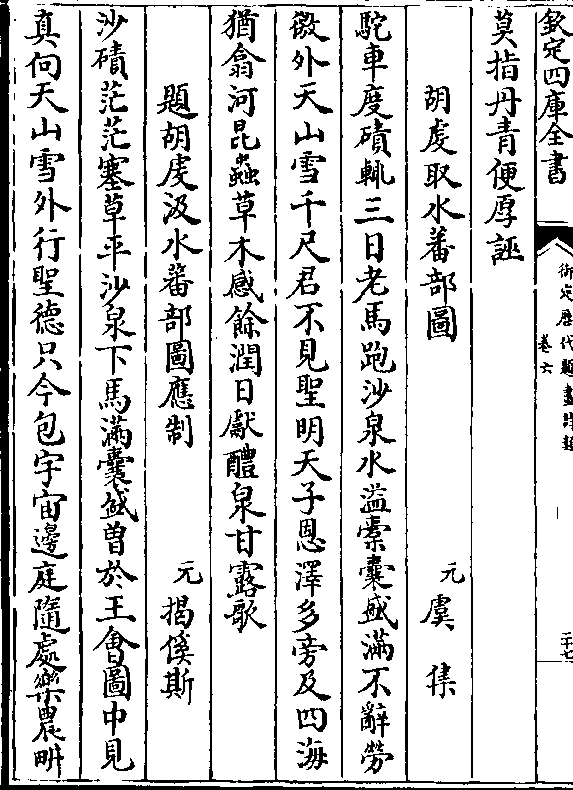 欽定四庫全書
御定歷代題畫詩類
卷六
二十七
莫指丹青便厚誣
胡虔取水蕃部圖
元 虞集
駝車度磧輒三日老馬跑沙泉水溢橐囊盛滿不辭勞
徼外天山雪千尺君不見聖明天子恩澤多旁及四海
猶翕河昆蟲草木感餘潤日獻醴泉甘露歌
題胡虔汲水蕃部圖應制
元 揭傒斯
沙磧茫茫塞草平沙泉下馬滿囊盛曽於王會圖中見
真向天山雪外行聖德只今包宇宙邊庭隨處樂農畊